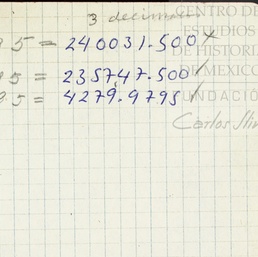 3 decimales
5 = 240031.500 ✓
5 = 235747.500 ✓
9.5 = 4279.9795 ✓
CENTRO DE
ESTUDIOS
DE HISTORIA
DE MEXICO
FUNDACIÓ
Carlos Slim